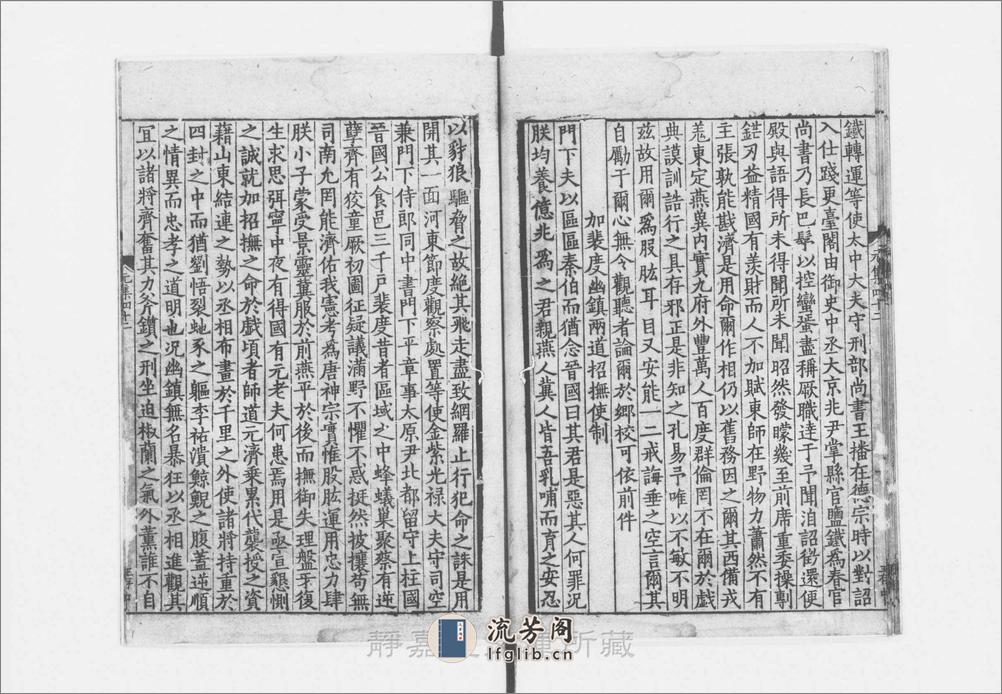 鐵轉運等使太中大夫守刑部尚書王播在德宗時以對詔
入仕踐更臺閣由御史中丞大京兆尹掌縣官鹽鐵爲春官
尚書乃長巴髳以控蠻蜑盡稱厥職達于予聞洎詔徵還便
殿與語得所未得聞所未聞昭然發矇幾至前席重委操剸
錯刃益精國有羡財而人不加賦東師在野物力蕭然不有
主張孰能戡濟是用命爾作相仍以舊務因之爾其西備戎
羗東定燕兾内實九府外豐萬人百度群倫罔不在爾於戲
典謨訓誥行之具存邪正是非知之孔易予唯以不敏不明
兹故用爾爲股肱耳目又安能一二戒誨垂之空言爾其
自勵于爾心無令觀聽者論爾於鄉校可依前件
加裴度幽鎮兩道招撫使制
門下夫以區區秦伯而猶念晉國曰其君是惡其人何罪况
朕均養億兆爲之君親燕人兾人皆吾乳哺而育之安忍
以豺狼驅脅之故絕其飛走盡致網羅止行犯命之誅是用
開其一面河東節度觀察處置等使金紫光禄大夫守司空
兼門下侍郎同中書門下平章事太原尹北都留守上柱國
晉國公食邑三千戸裴度昔者區域之中蜂蟻巢聚蔡有逆
孽齊有狡童厥初圖征疑議滿野不懼不惑挺然披攘苟無
司南允罔能濟佑我憲考爲唐神宗實惟股肱運用忠力肆
朕小子蒙受景靈兾服於前燕平於後而撫御失理盤牙復
生求思弭寧中夜有得國有元老夫何患焉用是亟宣懇惻
之誠就加招撫之命於戲頃者師道元濟乘累代襲授之資
藉山東結連之勢以丞相布畫於千里之外使諸將持重於
四封之中而猶劉悟裂虵豕之軀李祐潰鯨鯢之腹蓋逆順
之情異而忠孝之道明也况幽鎮無名暴狂以丞相進觀其
宜以諸將齊奮其力斧鑕之刑坐迫椒蘭之氣外薰誰不自
元集四十二
元集四十二
流芳阁
lfglib.cn
靜嘉
所藏